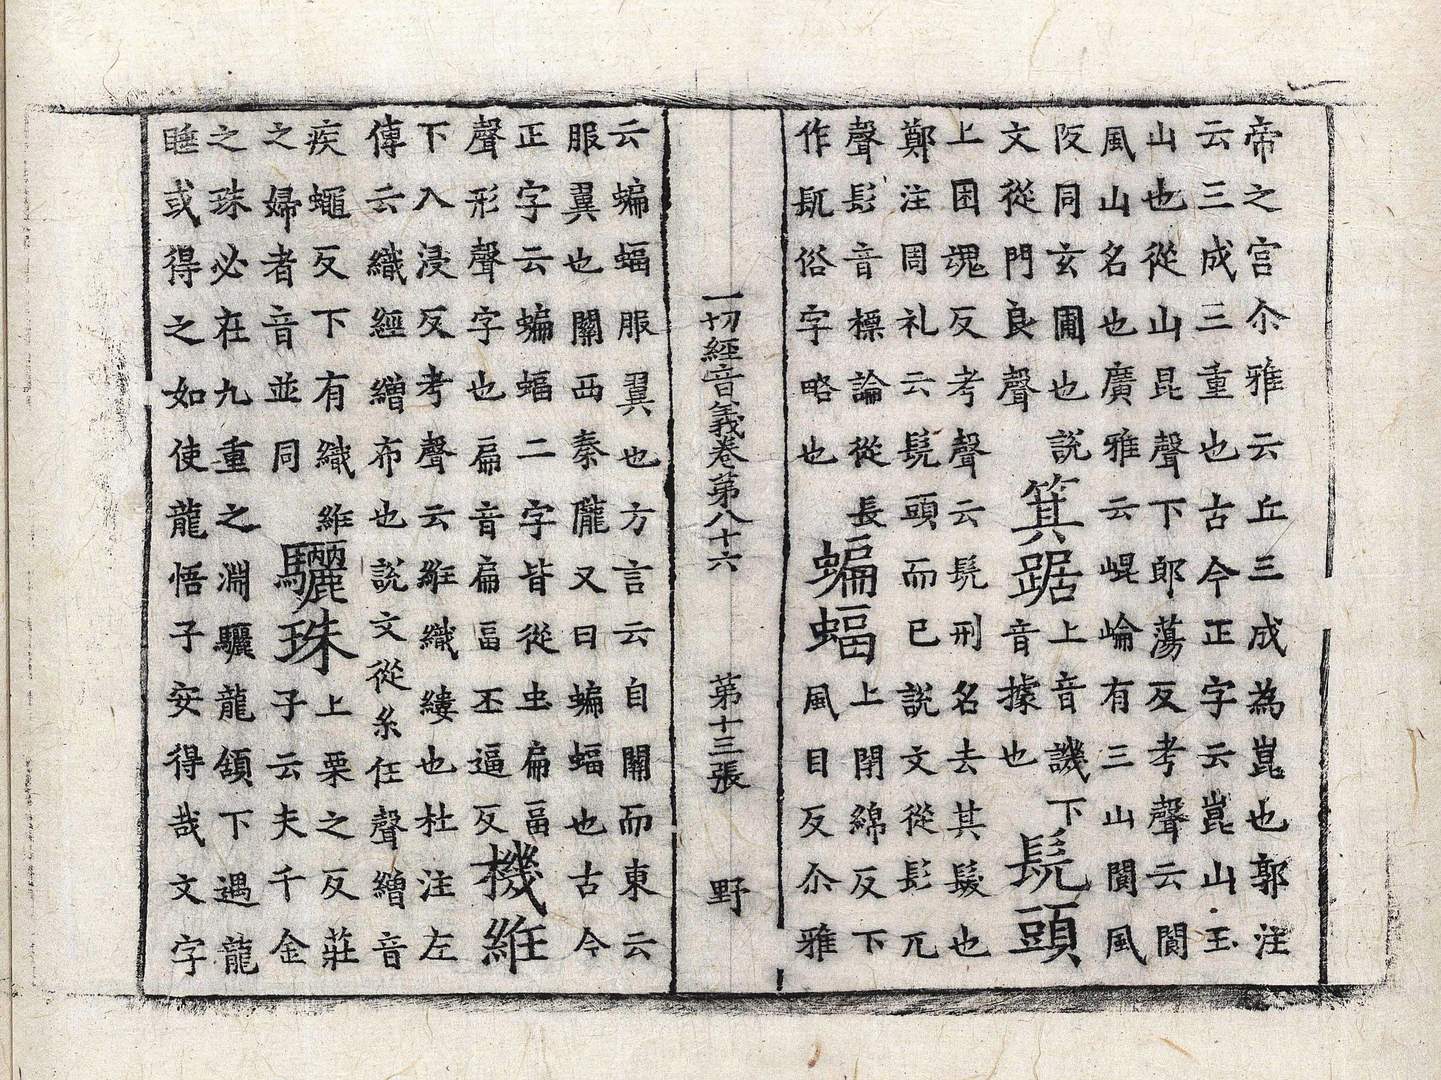 帝之宫尒雅云丘三成為崑也郭注
云三成三重也古今正字云崑山玉
山也從山昆聲下郎蕩反考聲云閬
風山名也廣雅云崐崘有三山閬風
阪同玄圃也說
文從門良聲
箕踞
上音譏下
音據也
髠頭
上困魂反考聲云髠刑名去其髮也
鄭注周礼云髠頭而已說文從髟兀
聲髟音標論從長
作俗字略也
蝙蝠
上閉綿反下
風目反尒雅
一切經音義卷第八十六 第十三張 野
云蝙蝠服翼也方言云自關而東云
服翼也關西秦隴又曰蝙蝠也古今
正字云蝙蝠二字皆從虫扁畐
聲形聲字也扁音扁畐丕逼反
機絍
下入浸反考聲云絍織縷也杜注左
傳云織經繒布也說文從糸任聲繒音
疾蠅反下有織絍
之婦者音並同
驪珠
上栗之反莊
子云夫千金
之珠必在九重之淵驪龍頷下遇龍
睡或得之如使龍悟子安得哉文字